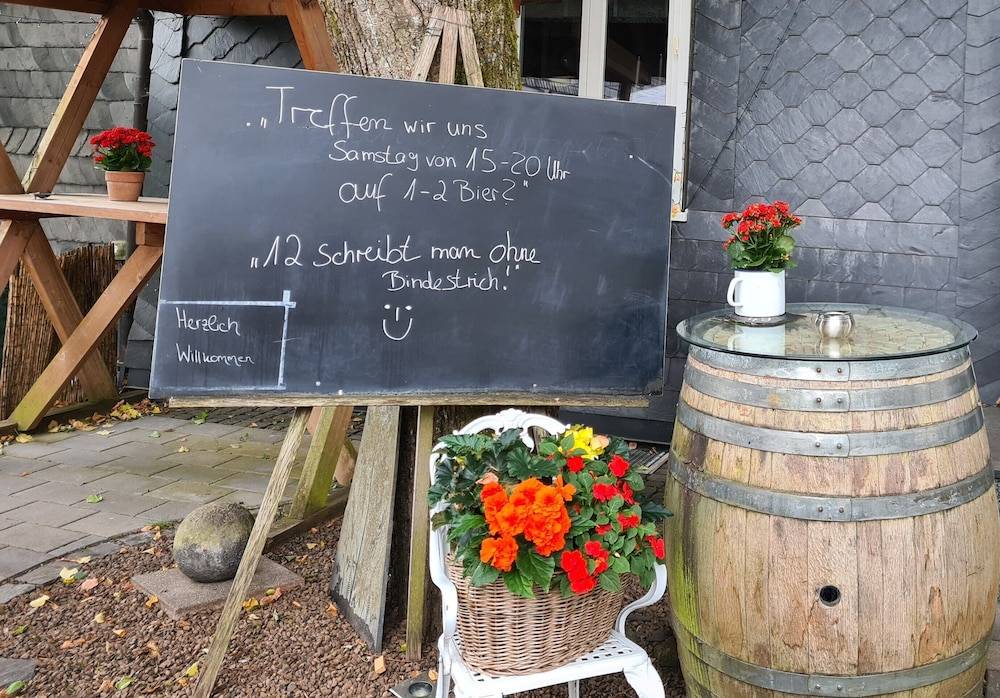 „Treffen wir uns
Samstag von 15-20 Uhr
auf 1-2 Bier?"
„12 schreibt man ohne
Bindestrich!"
Herzlich
Willkommen